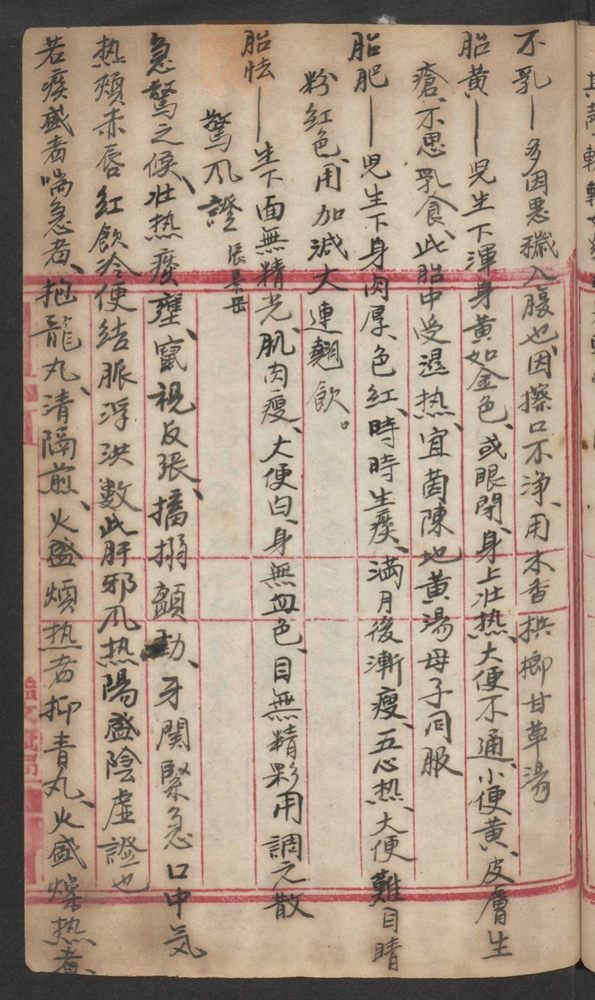 不乳—多因惡穢入腹也、因擦口不淨、用木香栱榔甘草湯
胎黃—兒生下渾身黃如金色、或眼閉、身上壯热、大便不通、小便黃、皮膚生
瘡、不思乳食、此胎中受湿热、宜茵陳地黃湯母子同服
胎肥—兒生下身肉厚、色紅、時時生痰、滿月後漸瘦、五心热、大便難目睛
粉紅色、用加减大連翹飲。
胎怯—生下面無精光、肌肉瘦、大便白、身無血色、目無精彩、用調元散
驚風證 张景岳
急驚之候、壯热痰壅、竄視反張、搐搦顫動、牙関緊急口中気
热頰赤唇紅飲冷便结脈浮洪數此肝邪风热陽盛陰虚證也
若痰盛者喘急者、抱龍丸、清隔煎、火盛煩热者抑青丸、火盛燥热者、